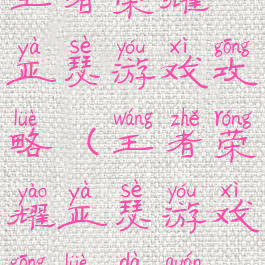 王者荣耀
yà sè yóu xì gōng
亚瑟游戏攻
lüè wáng zhě róng
略(王者荣
yào yà sè yóu xì
耀亚瑟游戏
gōng lüè dà quán